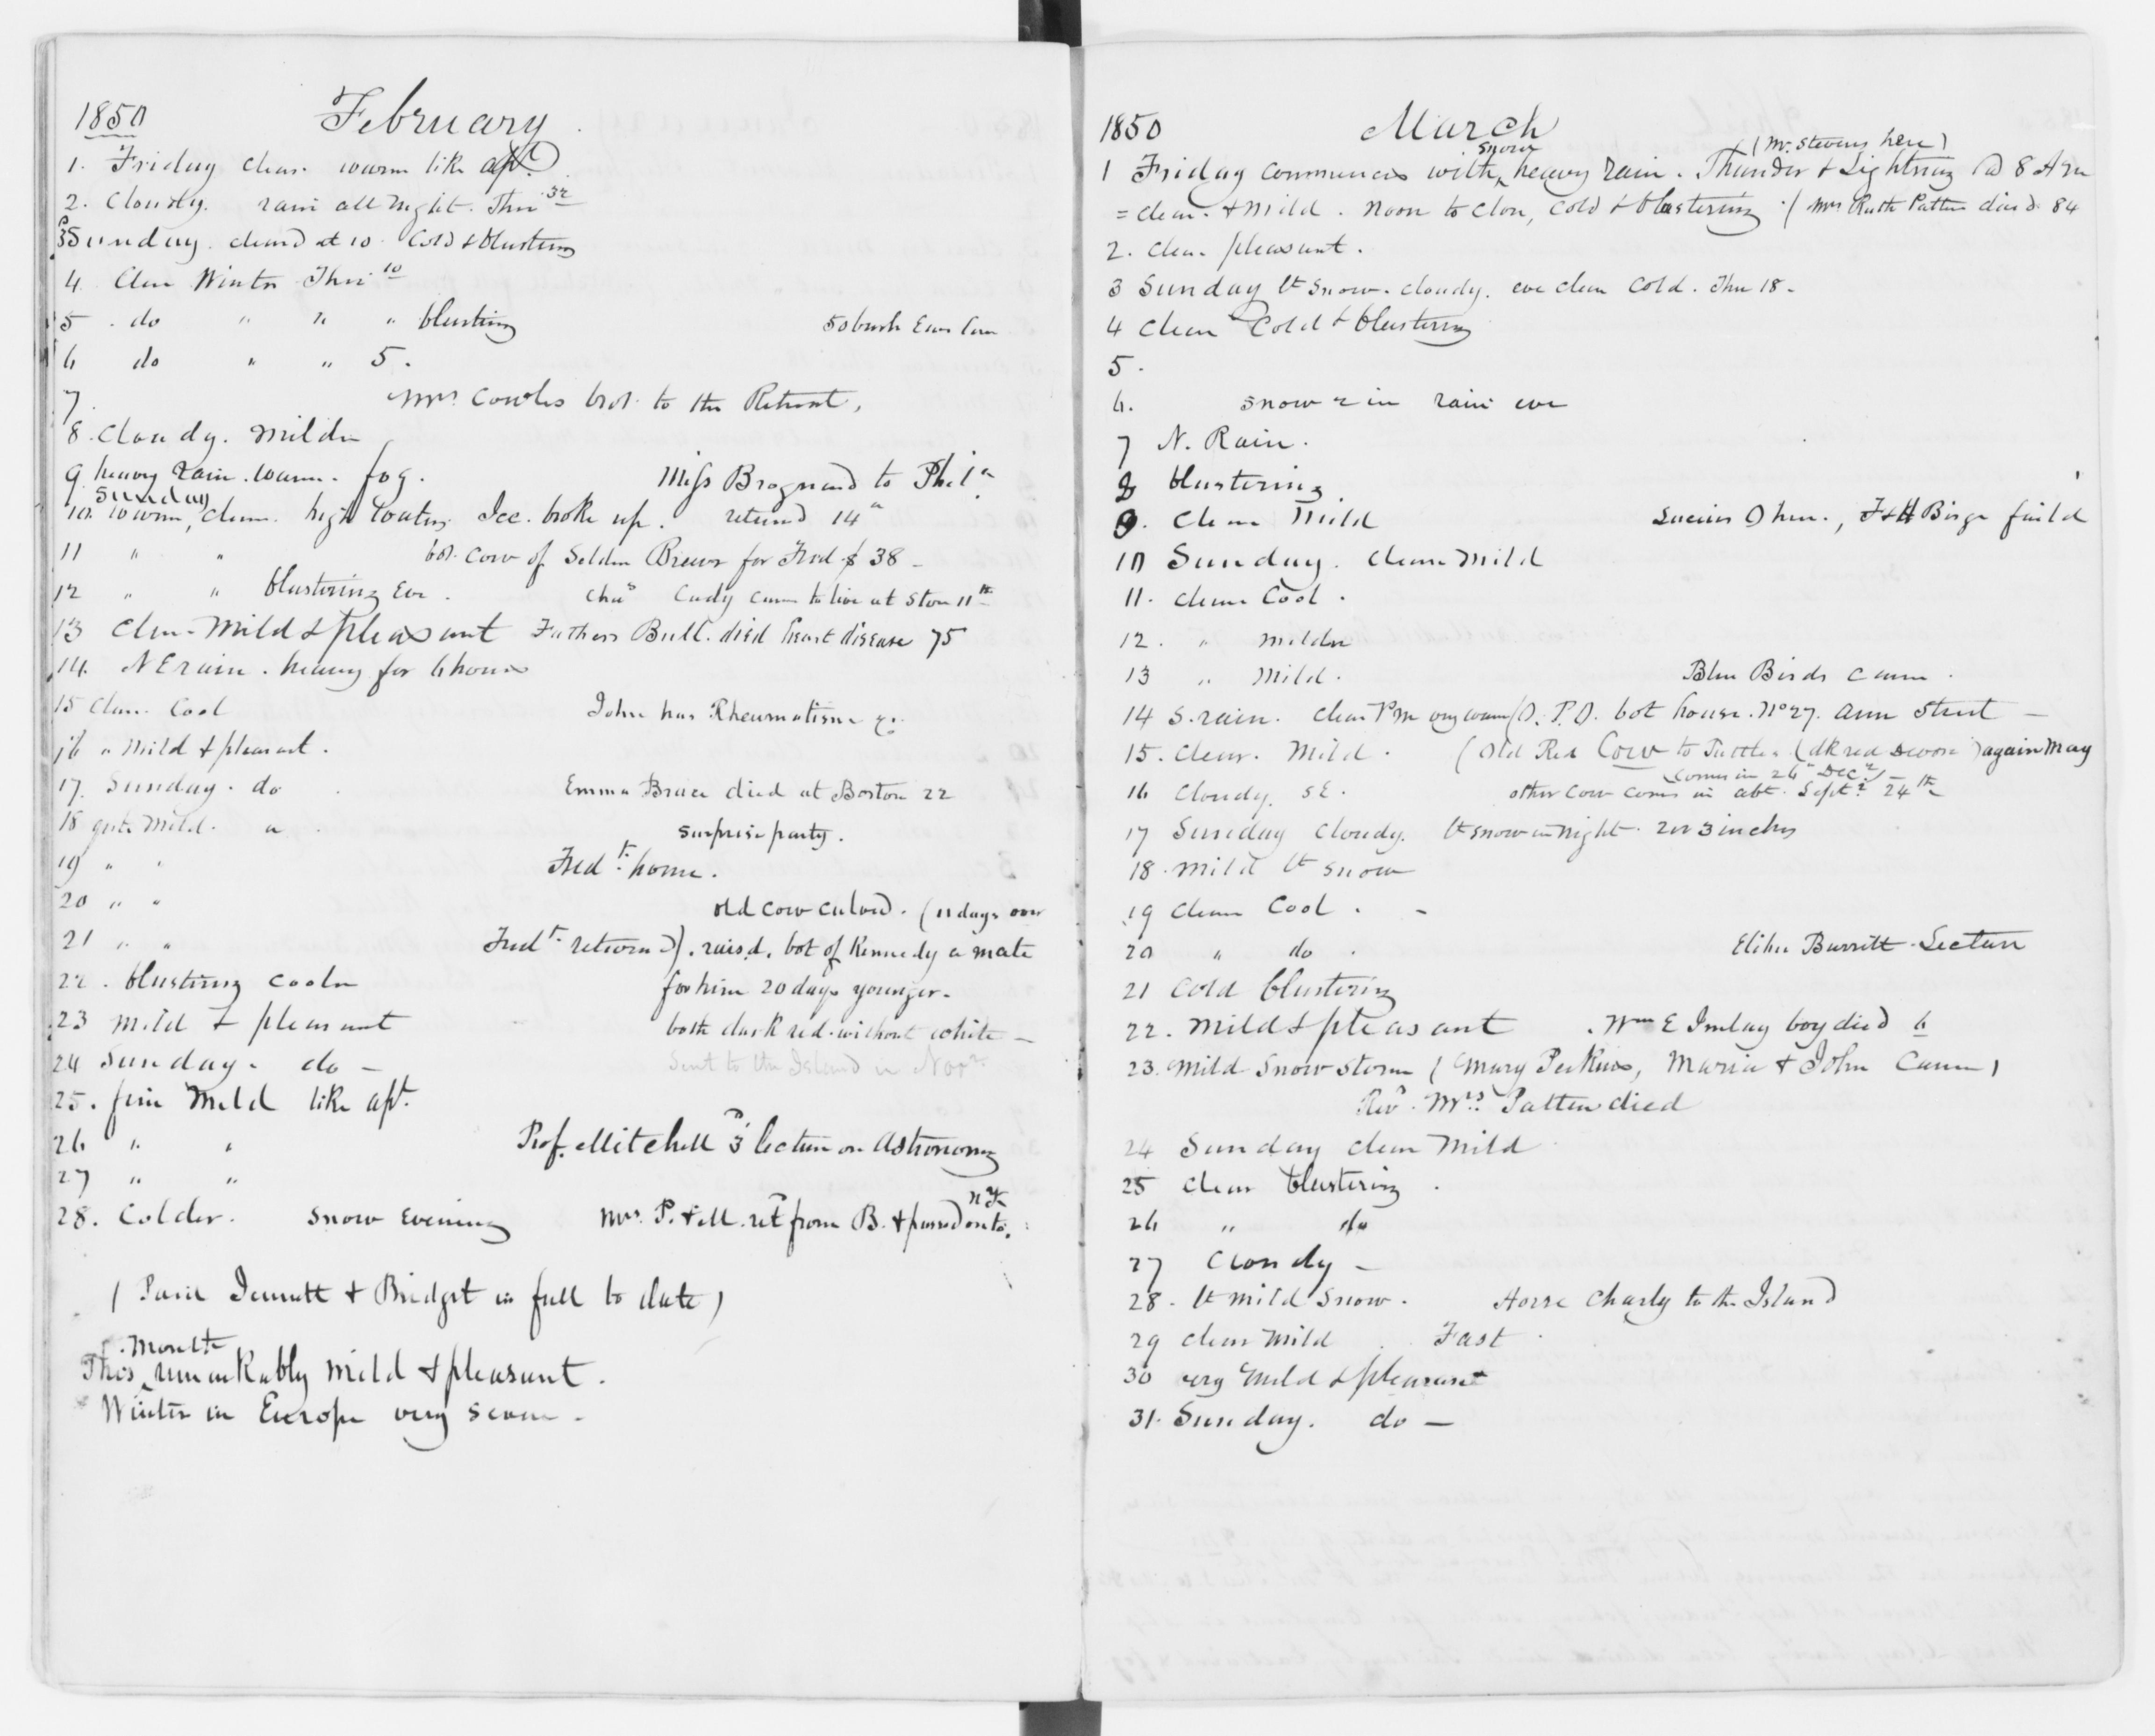 1850 February
1. Friday clear. warm like apl.
2. Cloudy. rain all night. Thr 32
3 Sunday. cleard at 10. Cold & blustering
4. Clear Winter Thr 10
5. do " " " blustering 50 bush Ears Corn
6 do " " 5.
7. Mrs. Cowles brot. to the Retreat,
8. Cloudy. milder
9 heavy rain. warm. fog. Miss Brognard to Phila.
Sunday
10. warm, clear. high water. Ice. broke up. returned 14"
11 " " bot. cow of Selden Brewer for Fred $ 38 -
12 " " blustering Eve. Chas Cady came to live at Store 11th
13 Clear Mild & pleasant Fathers Bull. died heart disease 75
14. N E rain. heavy for 6 hours
15 Clear. Cool John has Rheumatism &c.
16 " Mild & pleasant.
17. Sunday. do Emma Brace died at Boston 22
18 quite Mild. " surprise party.
19 " " Fredk. home.
20 " " old cow calved. (11 days over
21 " " Fredk. returned). raisd. bot of Kennedy a mate
22. blustering cooler for him 20 days younger.
23 mild & pleasant both dark red. without white -
24 Sunday. do - Sent to the Island in Novr.
25. fine Mild like apl.
26 " " Prof. Mitchell 3d lecture on Astronomy
27 " "
N Yk
28. Colder. snow Evening Mrs. P. & M. retd from B. & passed on to.
( Paid Jennett & Bridget in full to date )
Month
This remarkably mild & pleasant.
Winter in Europe very severe.
1850 March
(Mr. Stevens here)
snow
1 Friday commences with heavy rain. Thunder & Lightning @ 8 A m
= clear. & mild. Noon to Clou, cold & blustering. ( Mrs Ruth Patten died. 84
2. clear pleasant.
3 Sunday lt snow. cloudy. eve clear cold. Thr 18 -
4 clear Cold & blustering
5.
6. snow 2 in rain eve
7 N. Rain.
8 blustering
9. Clear Mild Lucius here., F & H Birge faild
10 Sunday. Clear mild
11. clear Cool.
12. " milder
13 " Mild. Blue Birds came.
14 S. rain. clear P m very warm (D. P. D. bot house. No 27. Ann Street -
15. Clear. Mild. (Old Red Cow to Tuttles (dk red Devon) again May
comes in 26" Decr)
16 Cloudy. SE. other cow comes in abt. Septr. 24th
17 Sunday cloudy. lt snow in night. 2 or 3 inches
18. mild lt snow
19 clear Cool. -
20 " do. Elihu Burritt Lecture
21 Cold blustering
22. mild & pleasant. Wm E Imlay boy died 6
23. mild Snow storm ( Mary Perkins, Maria & John Came )
Revd. Mrs. Patten died
24 Sunday clear mild
25 clear blustering.
26 " do
27 Cloudy -
28. lt mild Snow. Horse Charly to the Island
29 clear mild Fast
30 very mild & pleasant
31. Sunday. do -